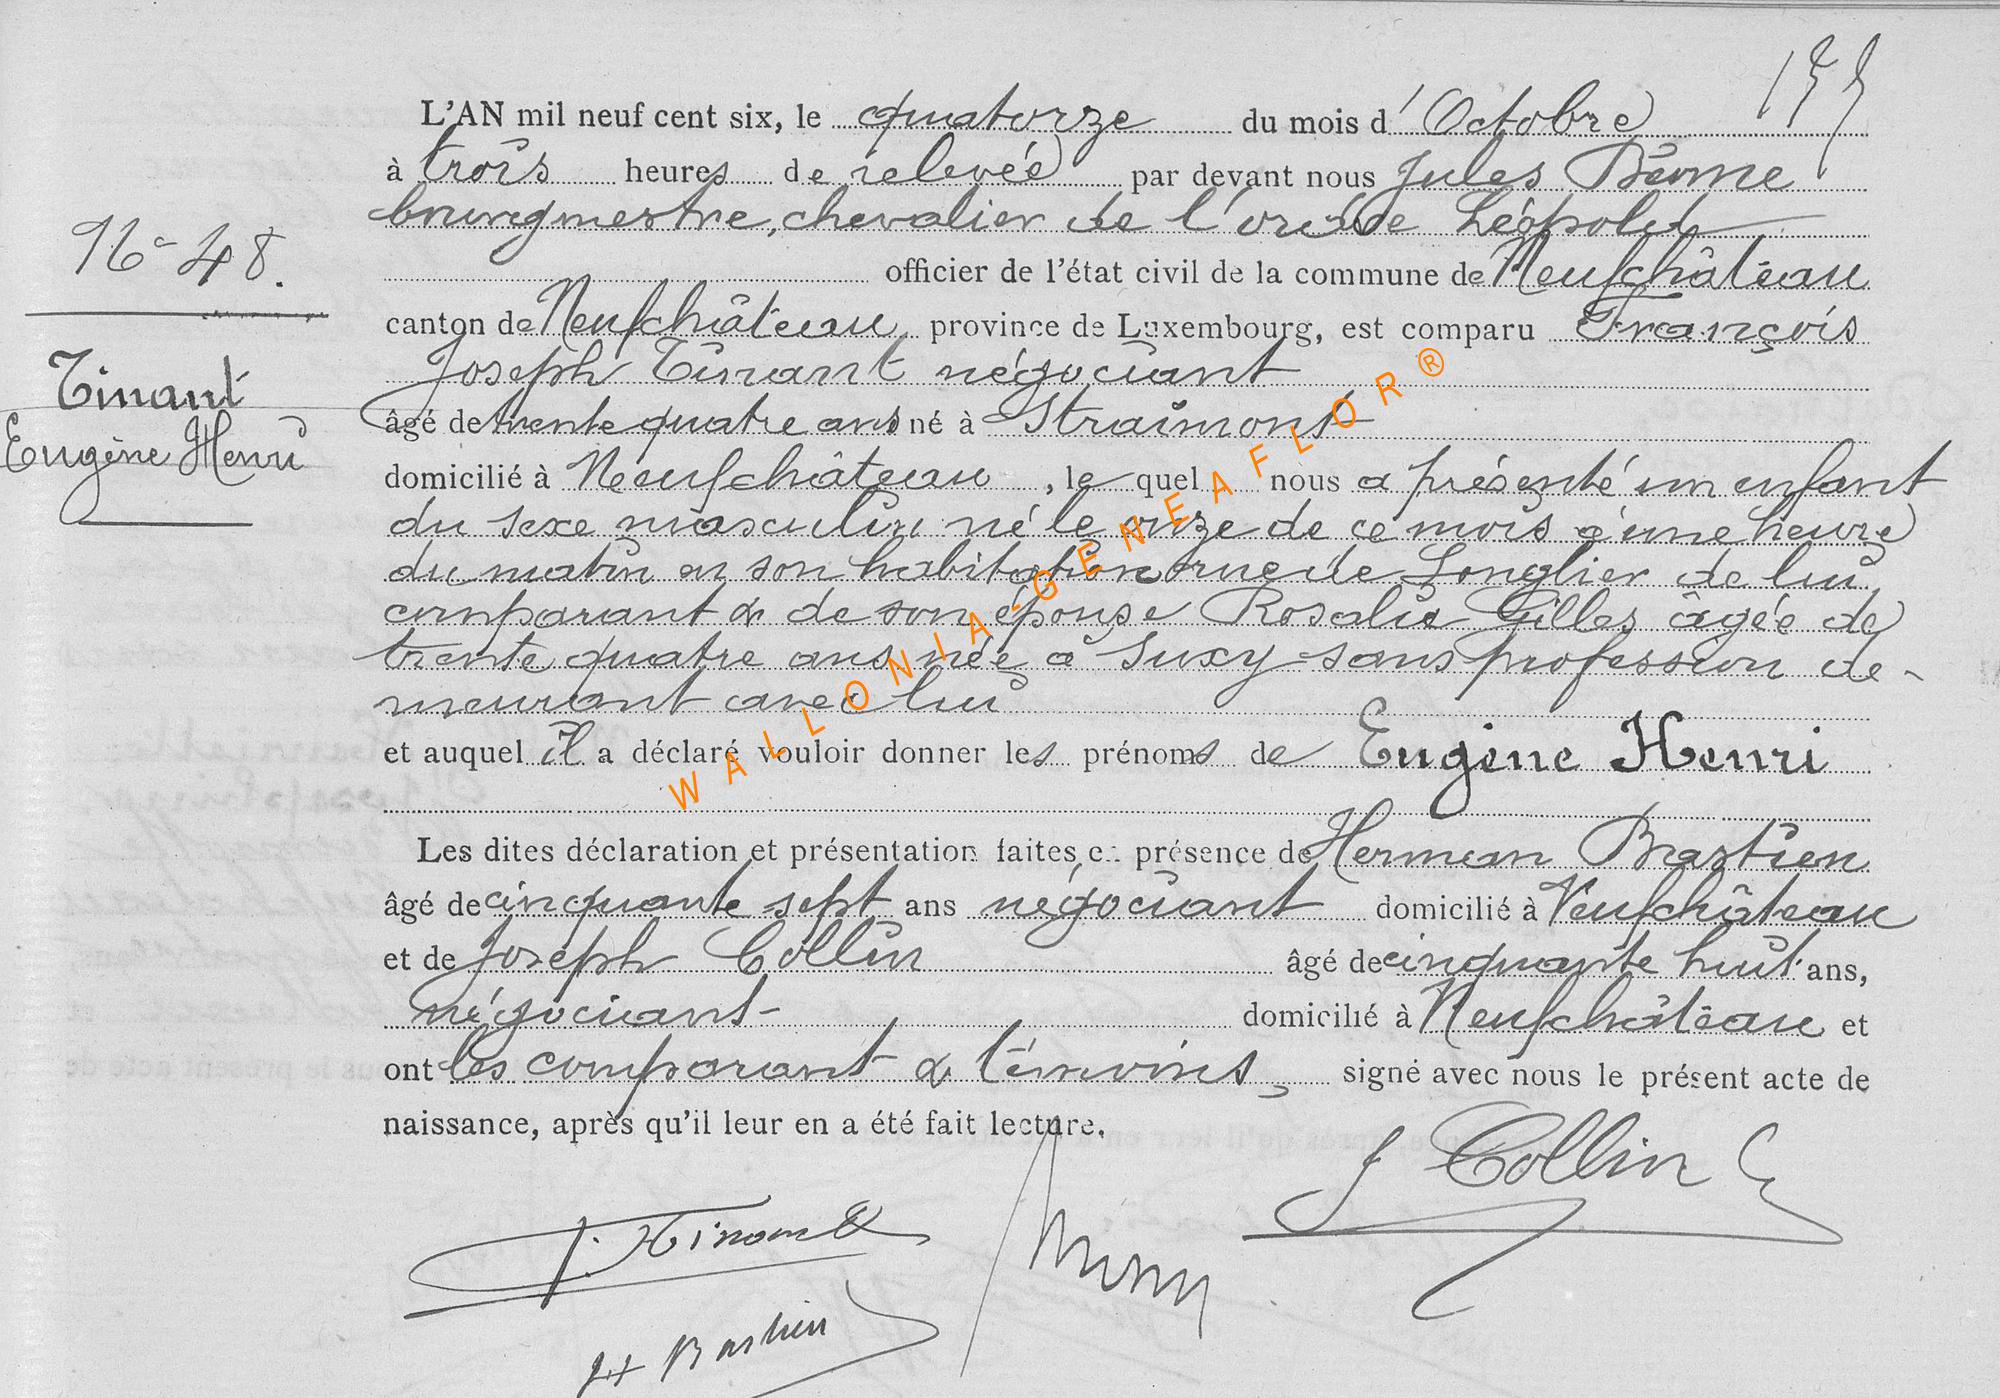 L'AN mil neuf cent six, le quatorze du mois d'Octobre
à trois heures de relevée par devant nous Jules
bourgmestre, chevalier de l'ordre Léopold
N° 48.
officier de l'état civil de la commune de Neufchâteau
canton de Neufchâteau, province de Luxembourg, est comparu François
Joseph Tinant négociant
Tinant
Eugène Henri
âgé de trente quatre ans né à Straimont
domicilié à Neufchâteau, lequel nous a présenté un enfant
du sexe masculin né le onze de ce mois à une heure
du matin en son habitation rue de Longlier de lui
comparant & de son épouse Rosalie Gilles âgée de
trente quatre ans née à Suxy sans profession de-
meurant avec lui
et auquel il a déclaré vouloir donner les prénoms de Eugène Henri
Les dites déclaration et présentation faites en présence de Herman Bastien
âgé de cinquante sept ans négociant domicilié à Neufchâteau
et de Joseph Collin âgé de cinquante huit ans,
négociant domicilié à Neufchâteau et
ont les comparant & témoins, signé avec nous le présent acte de
naissance, après qu'il leur en a été fait lecture.
J Collin
J. Tinant
H Bastien
WALLONIA-GENEAFLOR®